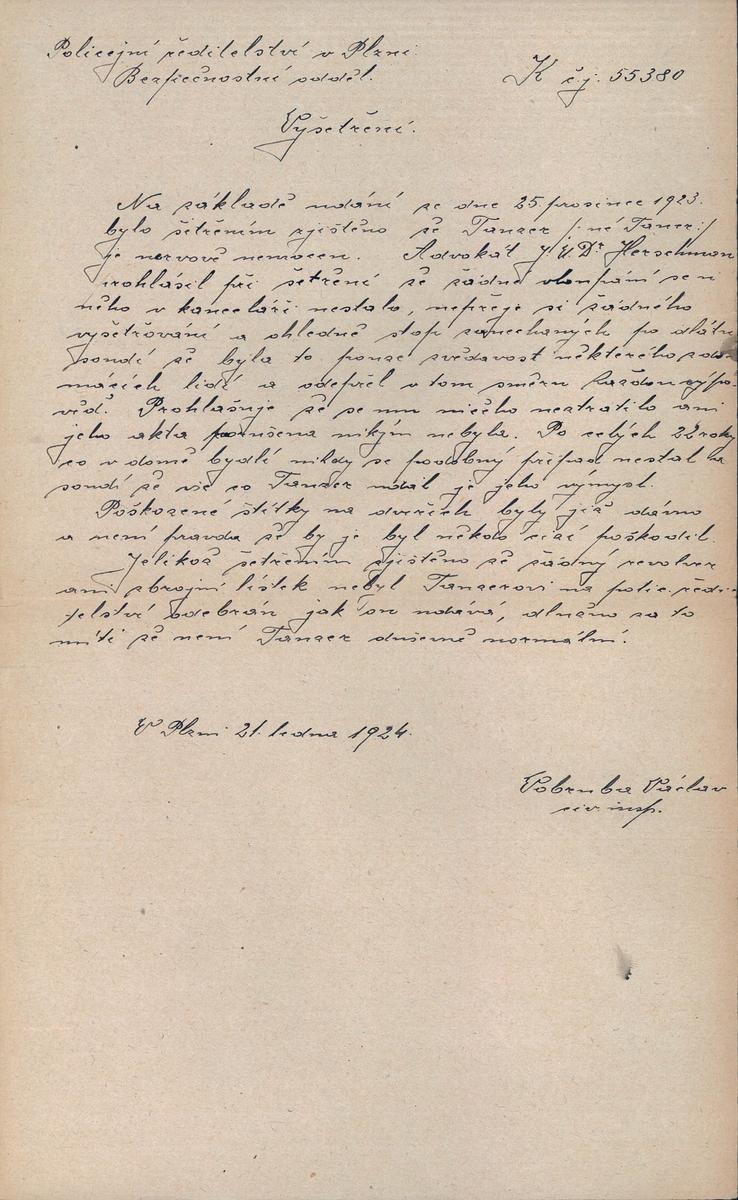 Policejní ředitelství v Plzni.
Bezpečnostní odděl.
K č.j. 55380
Vyšetření.
Na základě udání ze dne 25. prosince 1923.
bylo šetřením zjištěno že Tanzer /: né Taner :/
je nervově nemocen. Advokát J.U.Dr Herschman
prohlásil při šetření že žádné vloupání se u
něho v kanceláři nestalo, nepřeje si žádného
vyšetřování a ohledně stop zanechaných po dlátu
soudí že byla to pouze zvědavost některého z do-
mácích lidí a odepřel v tom směru každou výpo-
věď. Prohlašuje že se mu ničeho neztratilo ani
jeho akta porušena nikým nebyla. Po celých 22 roky
co v domě bydlí nikdy se podobný případ nestal a
soudí že vše co Tanzer udal je jeho výmysl.
Poškozené štítky na dveřích byly již dávno
a není pravda že by je byl někdo cizí poškodil.
Jelikož šetřením zjištěno že žádný revolver
ani zbrojní lístek nebyl Tanzerovi na polic. ředi-
telství odebrán jak on udává, dlužno za to
míti že není Tanzer duševně normální.
V Plzni 21. ledna 1924.
Václav
civ. insp.